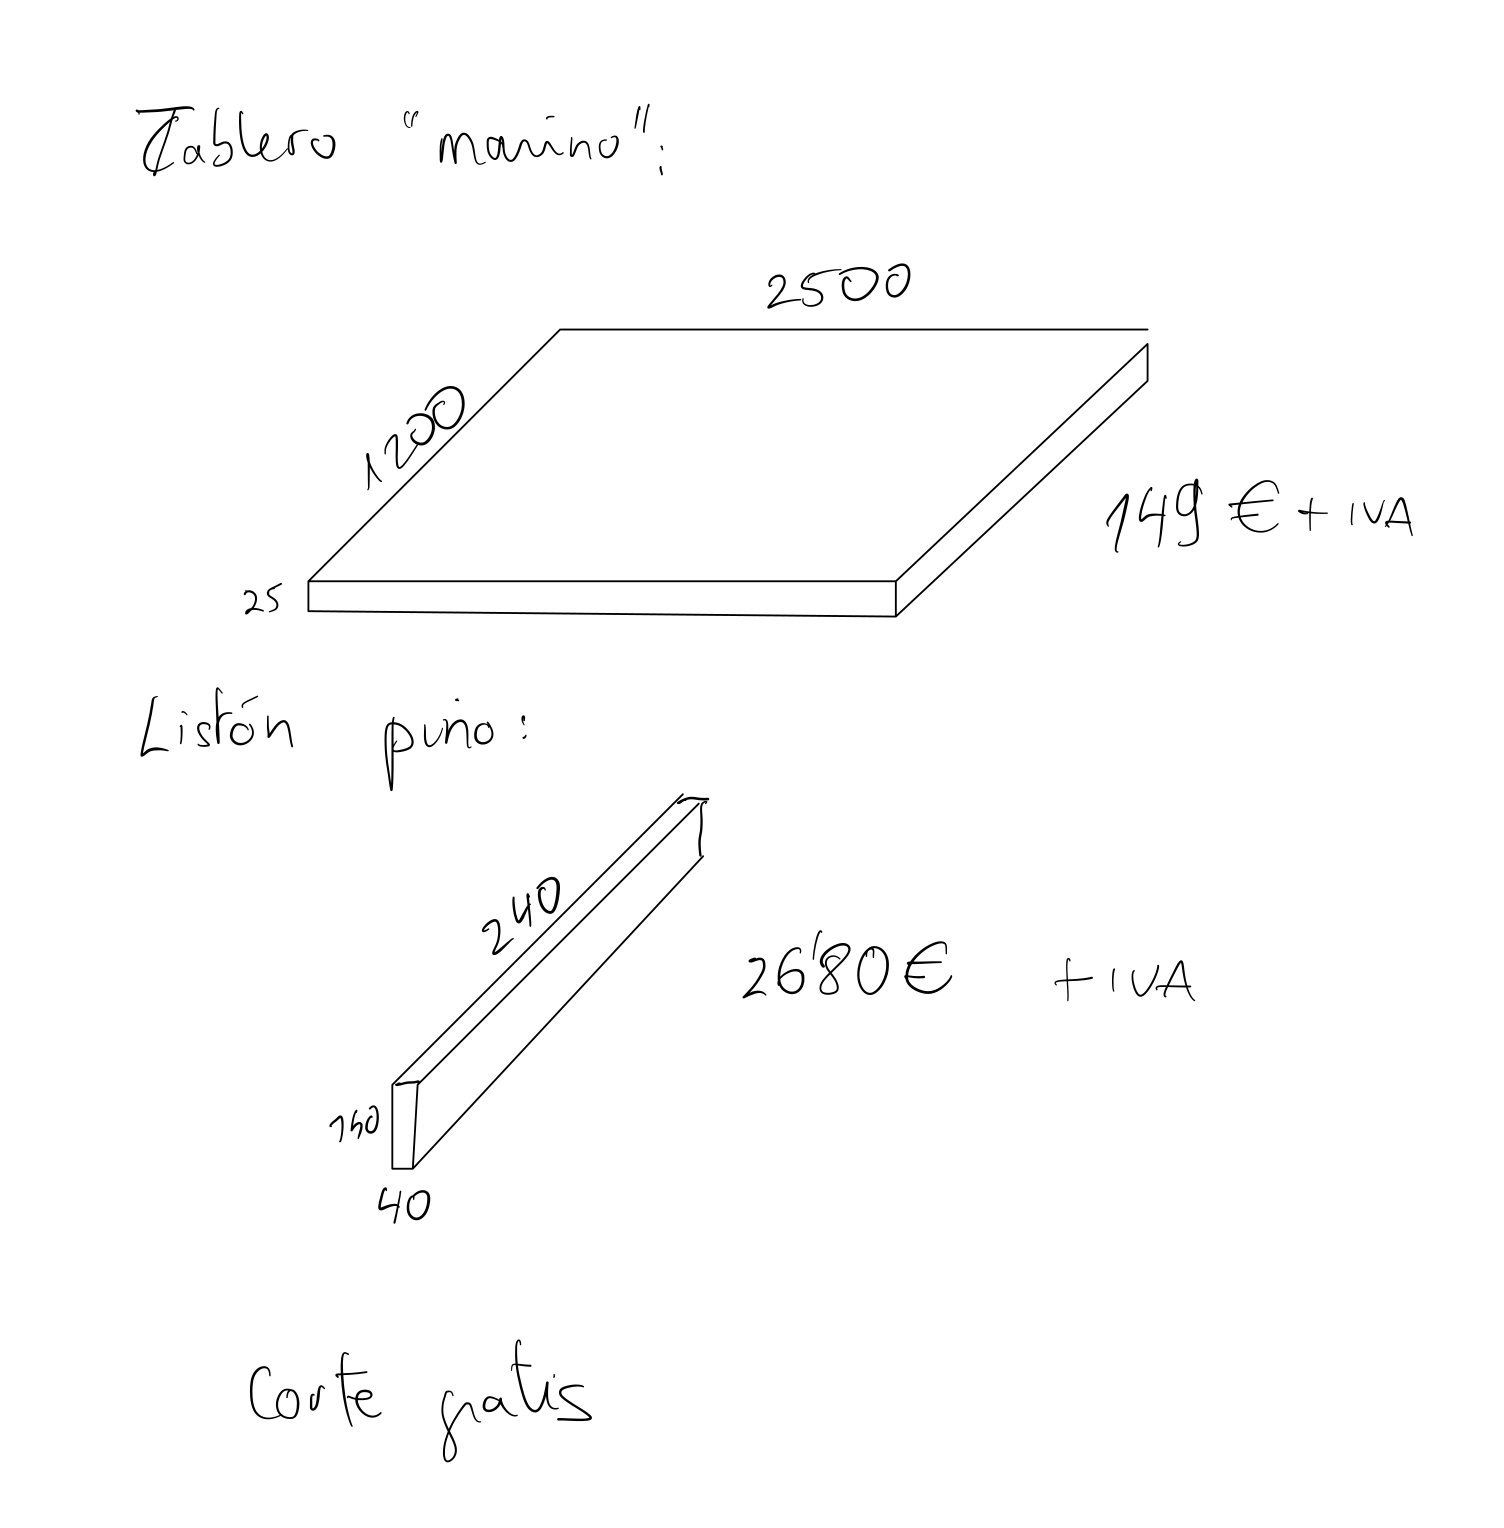 Tablero "marino":
2500
1200
149 € + IVA
25
Listón pino:
240
26'80 € + IVA
40
Corte gratis